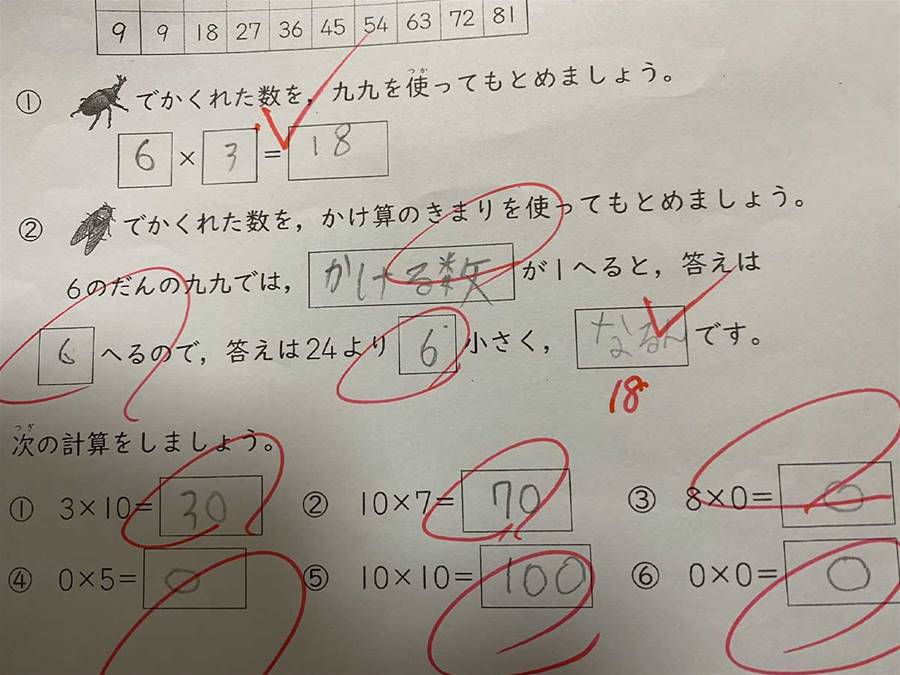 9 9 18 27 36 45 54 63 72 81
① でかくれた数を，九九を使(つか)ってもとめましょう。
6 × 3 = 18
② でかくれた数を，かけ算のきまりを使ってもとめましょう。
6のだんの九九では，かける数が1へると，答えは
6へるので，答えは24より6小さく，なるんです。
18
次(つぎ)の計算をしましょう。
① 3×10=30 ② 10×7=70 ③ 8×0=0
④ 0×5=0 ⑤ 10×10=100 ⑥ 0×0=0